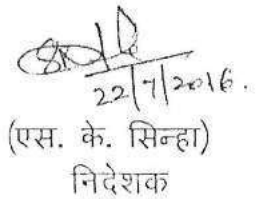 22/7/2016.
(एस. के. सिन्हा)
निदेशक